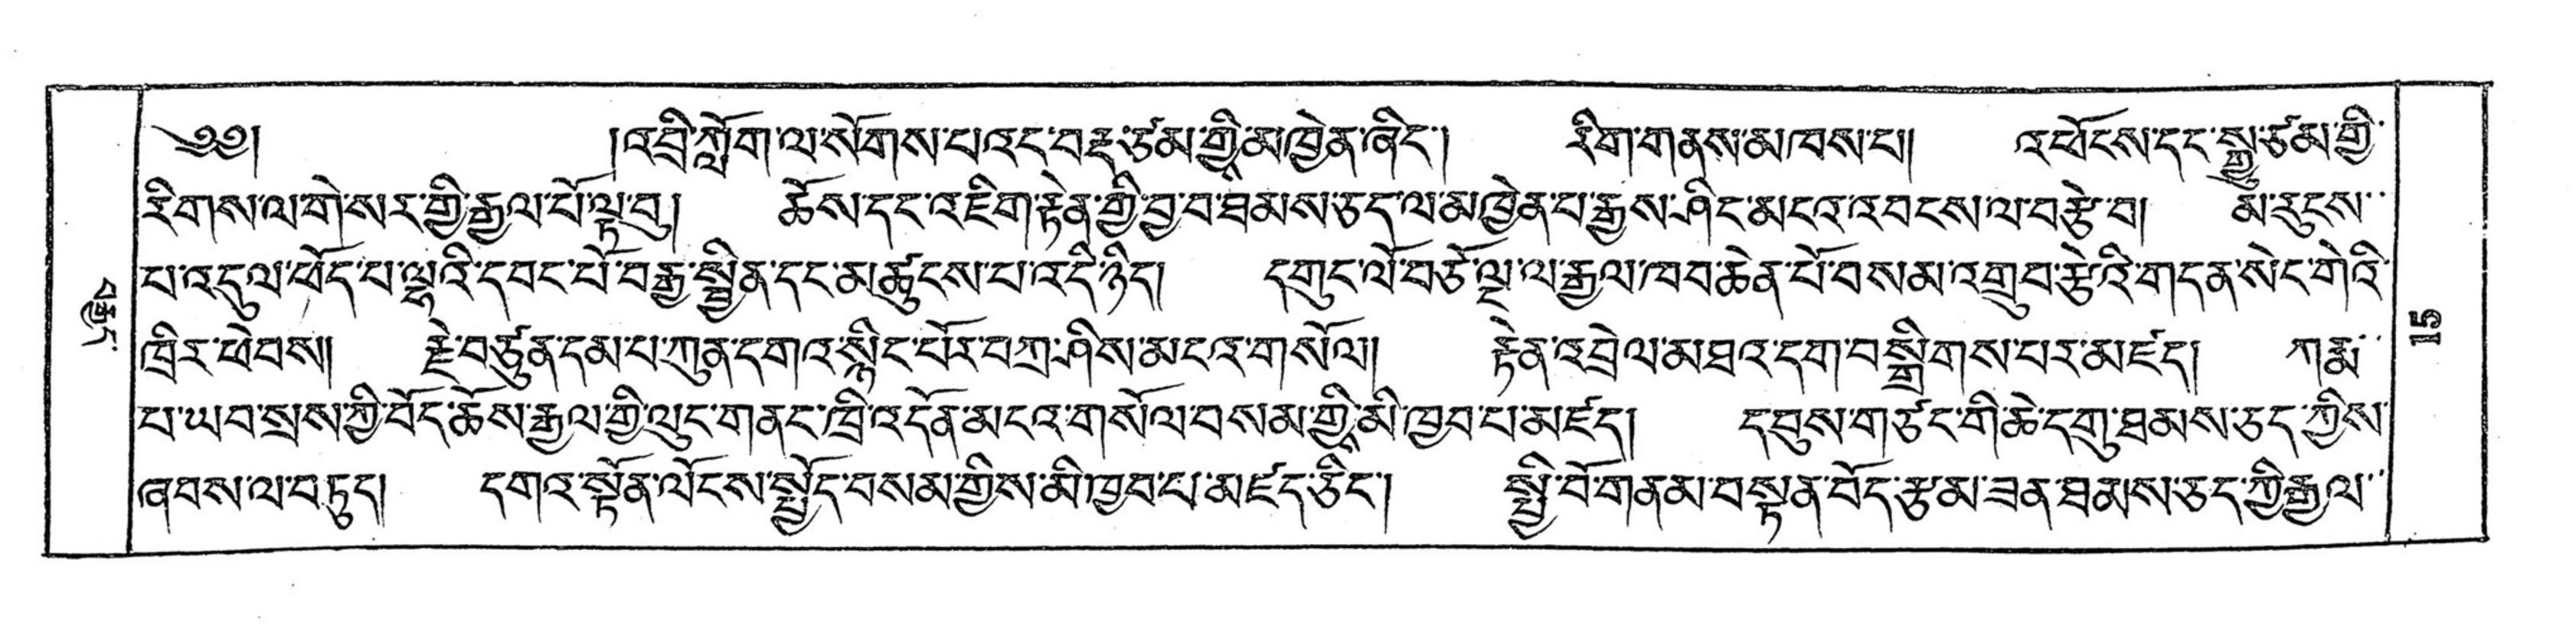 ༄༅། །འབྲི་ཀློག་ལ་སོགས་པ་འང་བརྡ་ཙམ་གྱི་མཁྱེན་ཞིང་། རིག་གནས་མཁས་པ། འཕོངས་དང་སྒྱུ་རྩལ་གྱི་
རིགས་ལ་གེ་སར་གྱི་རྒྱལ་པོ་ལྟ་བུ། ཆོས་དང་འཇིག་རྟེན་གྱི་བྱ་བ་ཐམས་ཅད་ལ་མཁྱེན་པ་རྒྱས་ཤིང་མངའ་འབངས་ལ་བརྩེ་བ། མི་རུངས་
པ་འདུལ་ཕོད་པ་ལྷའི་དབང་པོ་བརྒྱ་སྦྱིན་དང་མཚུངས་པ་འདི་ཉིད། དགུང་ལོ་བཅོ་ལྔ་ལ་རྒྱལ་ཁབ་ཆེན་པོ་བསམ་འགྲུབ་རྩེའི་གདན་སེང་གེའི་
ཁྲིར་ཕེབས། རྗེ་བཙུན་དམ་པ་ཀུན་དགའ་སྙིང་པོར་བཀྲ་ཤིས་མངའ་གསོལ། རྟེན་འབྲེལ་མཐའ་དག་བསྒྲིགས་པར་མཛད། ཀརྨ་
པ་ཡབ་སྲས་ཀྱི་བོད་ཆོས་རྒྱལ་གྱི་ལུང་གནང་ཁྲི་འདོན་མངའ་གསོལ་བསམ་གྱི་མི་ཁྱབ་པ་མཛད། དབུས་གཙང་གི་ཆེ་དགུ་ཐམས་ཅད་ཀྱིས་
ཞབས་ལ་བཏུད། དགའ་སྟོན་ལོངས་སྤྱོད་བསམ་གྱིས་མི་ཁྱབ་པ་མཛད་ཅིང་། སྤྱི་བོ་གནམ་བསྟན་བོད་རྩམ་ཟན་ཐམས་ཅད་ཀྱི་རྒྱལ་
15